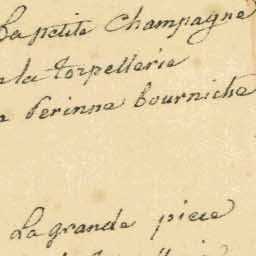 La petite Champagne
la torpellerie
perinne bourniche
La grande piece